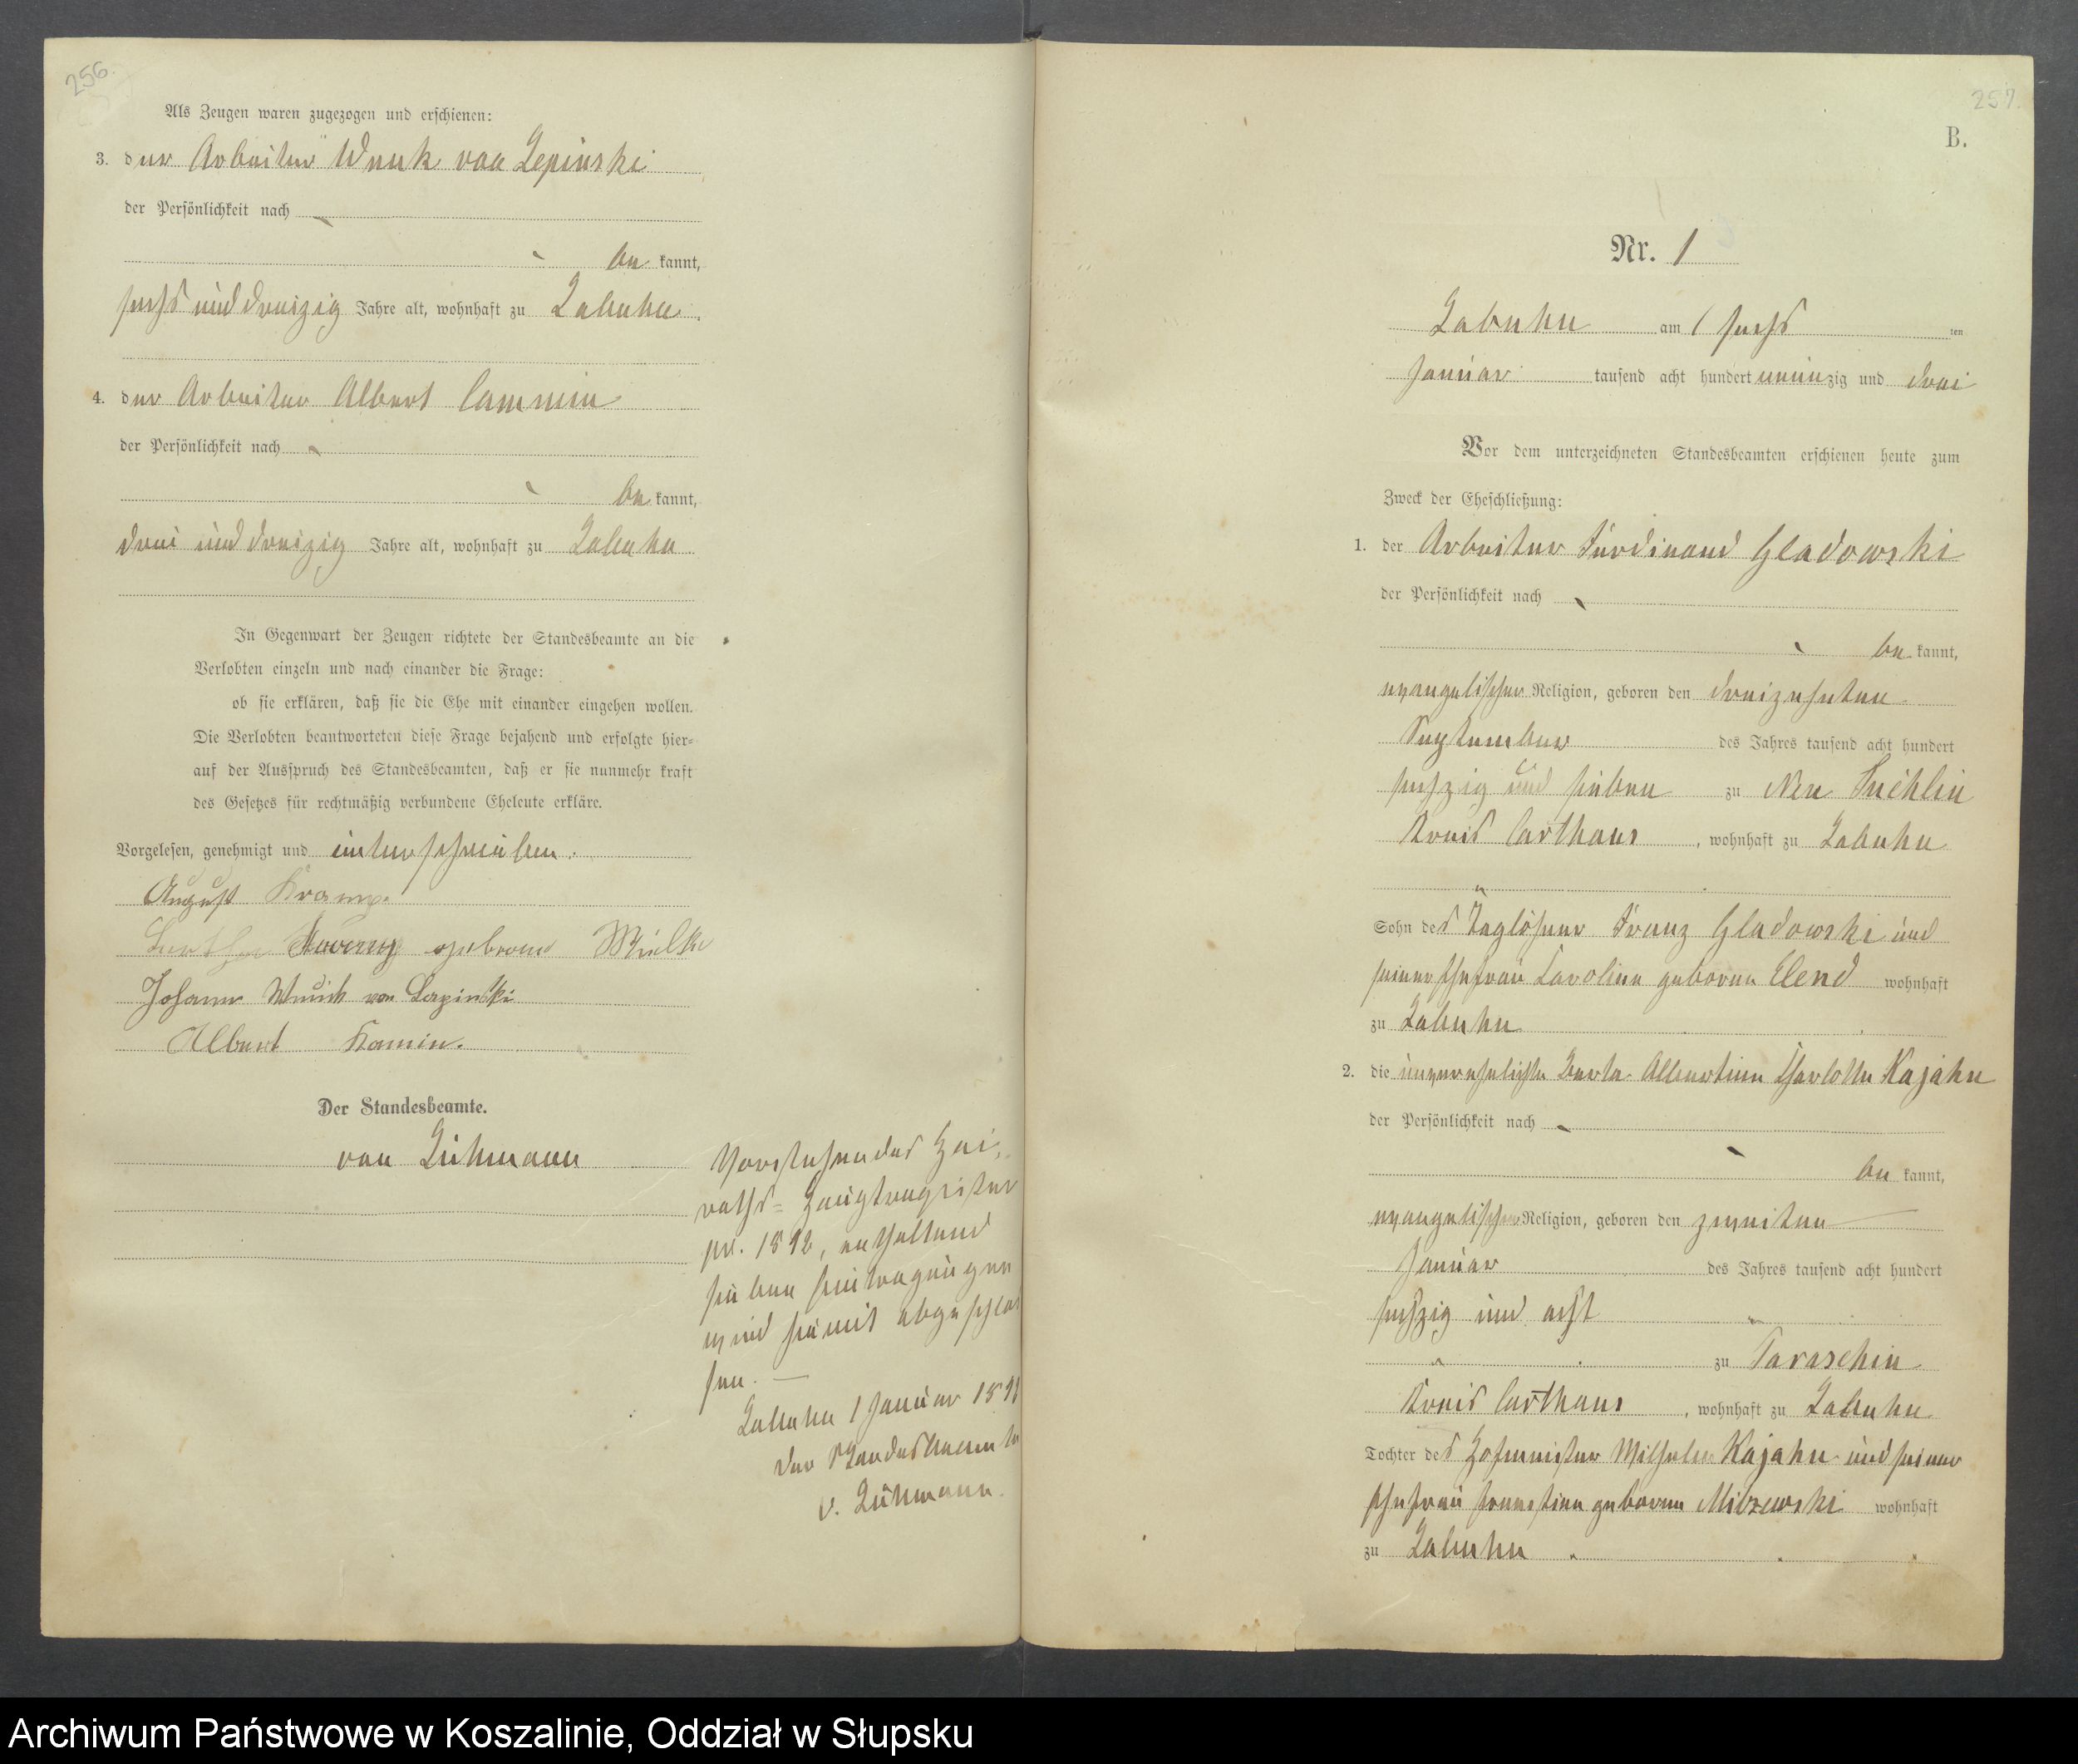 256.
Als Zeugen waren zugezogen und erschienen:
3. der Arbeiter Wnuk von Lepinski
der Persönlichkeit nach
be kannt,
sechs und dreizig Jahre alt, wohnhaft zu Labuhn.
4. der Arbeiter Albert Cammin
der Persönlichkeit nach
be kannt,
drei und dreizig Jahre alt, wohnhaft zu Labuhn
In Gegenwart der Zeugen richtete der Standesbeamte an die
Verlobten einzeln und nach einander die Frage:
ob sie erklären, daß sie die Ehe mit einander eingehen wollen.
Die Verlobten beantworteten diese Frage bejahend und erfolgte hier-
auf der Ausspruch des Standesbeamten, daß er sie nunmehr kraft
des Gesetzes für rechtmäßig verbundene Eheleute erkläre.
Vorgelesen, genehmigt und unterschrieben.
August Kramp.
geborene Mielke
Johann Wnuck von Lepinski
Albert Kamin.
Der Standesbeamte.
von Lühmann
Vorstehendes Hei-
raths-Hauptregister
pr. 1892, enthaltend
sieben Eintragungen
wird hiermit abgeschlos
sen. —
Labuhn 1 Januar 189
der Standesbeamte
v. Lühmann.
257.
B.
Nr. 1
Labuhn am sechs ten
Januar tausend acht hundert neunzig und drei
Vor dem unterzeichneten Standesbeamten erschienen heute zum
Zweck der Eheschließung:
1. der Arbeiter Ferdinand Gladowski
der Persönlichkeit nach
be kannt,
evangelischer Religion, geboren den dreizehnten
September des Jahres tausend acht hundert
sechzig und sieben zu Neu Suchlin
Kreis Carthaus, wohnhaft zu Labuhn
Sohn des Taglöhner Franz Gladowski und
seiner Ehefrau Caroline geborene Elend wohnhaft
zu Labuhn
2. die unverehelichte Berta Albertine Charlotte Kajahn
der Persönlichkeit nach
be kannt,
evangelischer Religion, geboren den zweiten
Januar des Jahres tausend acht hundert
sechzig und acht
zu Paraschin
Kreis Carthaus, wohnhaft zu Labuhn
Tochter des Hofmeister Wilhelm Kajahn und seiner
Ehefrau Ernestine geborene Mirzewski wohnhaft
zu Labuhn
Archiwum Państwowe w Koszalinie, Oddział w Słupsku